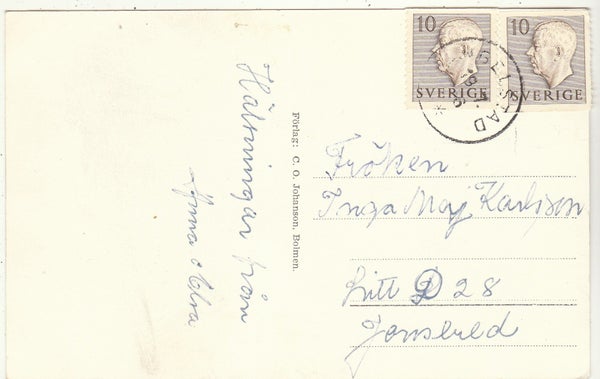 10 10
SVERIGE SVERIGE
Hälsningar från
Anna o Elva
Förlag: C. O. Johanson, Bolmen.
Fröken
Inga Maj Karlsson
Litt D 28
Jonsered